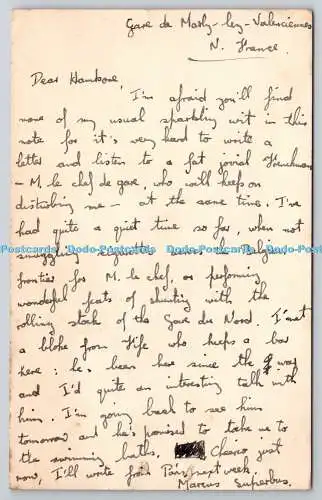 Gare de Marly-lez-Valenciennes
N. France.
Dear Hambone,
I'm afraid you'll find
none of my usual sparkling wit in this
note for it's very hard to write a
letter and listen to a fat jovial Frenchman
- M. le chef de gare, who will keep on
disturbing me - at the same time. I've
had quite a quiet time so far, when not
smuggling cigarettes across the Belgian
frontier for M. le chef, or performing
wonderful feats of shunting with the
rolling stock of the Gare du Nord. I've met
a bloke from Fife who keeps a bar
here: he's been here since the war
and I'd quite an interesting talk with
him. I'm going back to see him
tomorrow and he's promised to take me to
the swimming baths. Cheero just
now, I'll write from Paris next week.
Marcus Superbus.
Postcards Dodo-Postcards Dodo-Postcards Dodo-Postcards